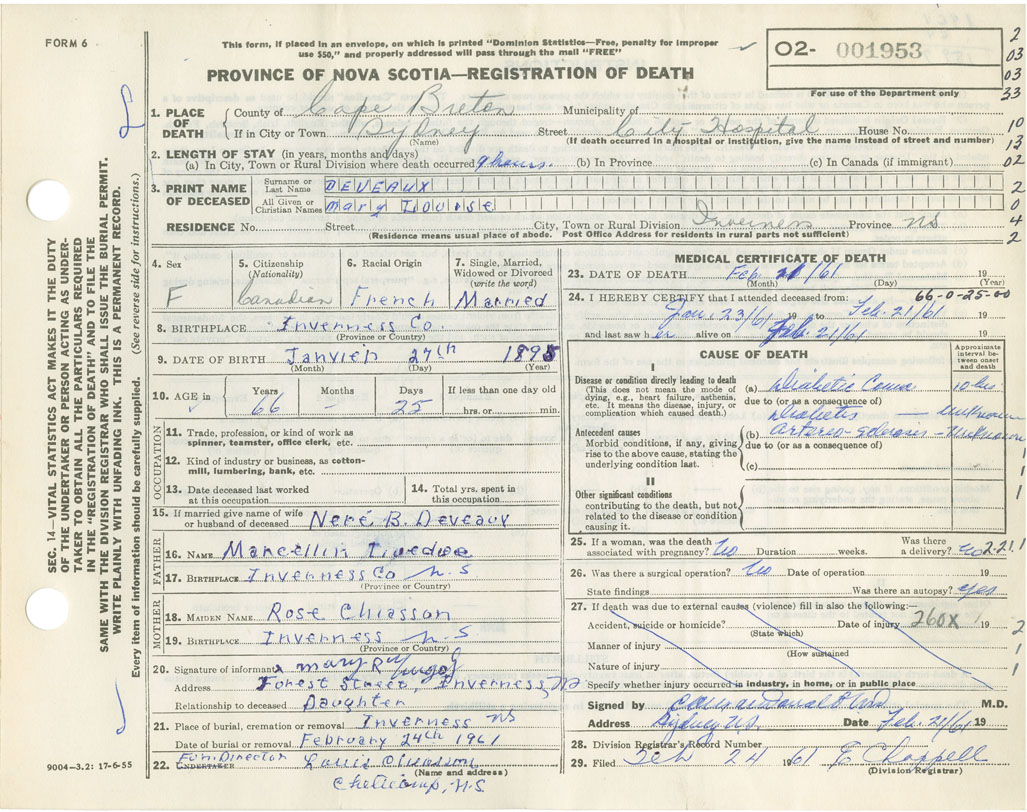 FORM 6
This form, if placed in an envelope, on which is printed "Dominion Statistics—Free, penalty for improper
use $50," and properly addressed will pass through the mail "FREE"
PROVINCE OF NOVA SCOTIA—REGISTRATION OF DEATH
02- 001953
For use of the Department only
2
03
03
33
10
13
02
2
0
4
2
SEC. 14—VITAL STATISTICS ACT MAKES IT THE DUTY
OF THE UNDERTAKER OR PERSON ACTING AS UNDER-
TAKER TO OBTAIN ALL THE PARTICULARS REQUIRED
IN THE "REGISTRATION OF DEATH" AND TO FILE THE
SAME WITH THE DIVISION REGISTRAR WHO SHALL ISSUE THE BURIAL PERMIT.
WRITE PLAINLY WITH UNFADING INK. THIS IS A PERMANENT RECORD.
Every item of information should be carefully supplied. (See reverse side for instructions.)
1. PLACE OF DEATH
County of Cape Breton Municipality of
If in City or Town Sydney Street City Hospital House No.
(Name) (If death occurred in a hospital or institution, give the name instead of street and number)
2. LENGTH OF STAY (in years, months and days)
(a) In City, Town or Rural Division where death occurred 9 hours. (b) In Province (c) In Canada (if immigrant)
3. PRINT NAME OF DECEASED
Surname or Last Name DEVEAUX
All Given or Christian Names Mary Louise
RESIDENCE No. Street City, Town or Rural Division Inverness Province NS
(Residence means usual place of abode. Post Office Address for residents in rural parts not sufficient)
4. Sex F
5. Citizenship (Nationality) Canadian
6. Racial Origin French
7. Single, Married, Widowed or Divorced (write the word) Married
8. BIRTHPLACE Inverness Co.
(Province or Country)
9. DATE OF BIRTH Janvier 27th 1895
(Month) (Day) (Year)
10. AGE in Years 66 Months — Days 25 If less than one day old hrs. or min.
OCCUPATION
11. Trade, profession, or kind of work as spinner, teamster, office clerk, etc.
12. Kind of industry or business, as cotton-mill, lumbering, bank, etc.
13. Date deceased last worked at this occupation
14. Total yrs. spent in this occupation
15. If married give name of wife or husband of deceased Neré B. Deveaux
FATHER
16. NAME Marcellin
17. BIRTHPLACE Inverness Co N-S
(Province or Country)
MOTHER
18. MAIDEN NAME Rose Chiasson
19. BIRTHPLACE Inverness N-S
(Province or Country)
20. Signature of informant x Mary R
Address Forest Street, Inverness, NS
Relationship to deceased Daughter
21. Place of burial, cremation or removal Inverness NS
Date of burial or removal February 24th 1961
22. Fun. Director UNDERTAKER Louis Chiasson
(Name and address)
Cheticamp, N.S
9004-3.2: 17-6-55
MEDICAL CERTIFICATE OF DEATH
23. DATE OF DEATH Feb 21/61 19
(Month) (Day) (Year)
24. I HEREBY CERTIFY that I attended deceased from: 66-0-25-00
Jan. 23/61 19 to Feb. 21/61
and last saw h er alive on Feb. 21/61 19
CAUSE OF DEATH
Approximate interval between onset and death
I
Disease or condition directly leading to death
(This does not mean the mode of dying, e.g., heart failure, asthenia, etc. It means the disease, injury, or complication which caused death.)
(a) Diabetic Coma 10 hrs
due to (or as a consequence of)
Diabetis — Unknown
Antecedent causes
Morbid conditions, if any, giving rise to the above cause, stating the underlying condition last.
(b) Arterio-sclerosis - Unknown
due to (or as a consequence of)
(c)
1
II
Other significant conditions
contributing to the death, but not related to the disease or condition causing it.
1
25. If a woman, was the death associated with pregnancy? No Duration weeks. Was there a delivery? No 2-21.1
26. Was there a surgical operation? No Date of operation 19
State findings Was there an autopsy? yes
27. If death was due to external causes (violence) fill in also the following:—
Accident, suicide or homicide? Date of injury 260X 19 2
(State which)
Manner of injury 1
(How sustained
Nature of injury 1
Specify whether injury occurred in industry, in home, or in public place
Signed by M.D.
Address Sydney N.S. Date Feb. 21/61 19
28. Division Registrar's Record Number
29. Filed Feb 24 1961 E Chappell
(Division Registrar)